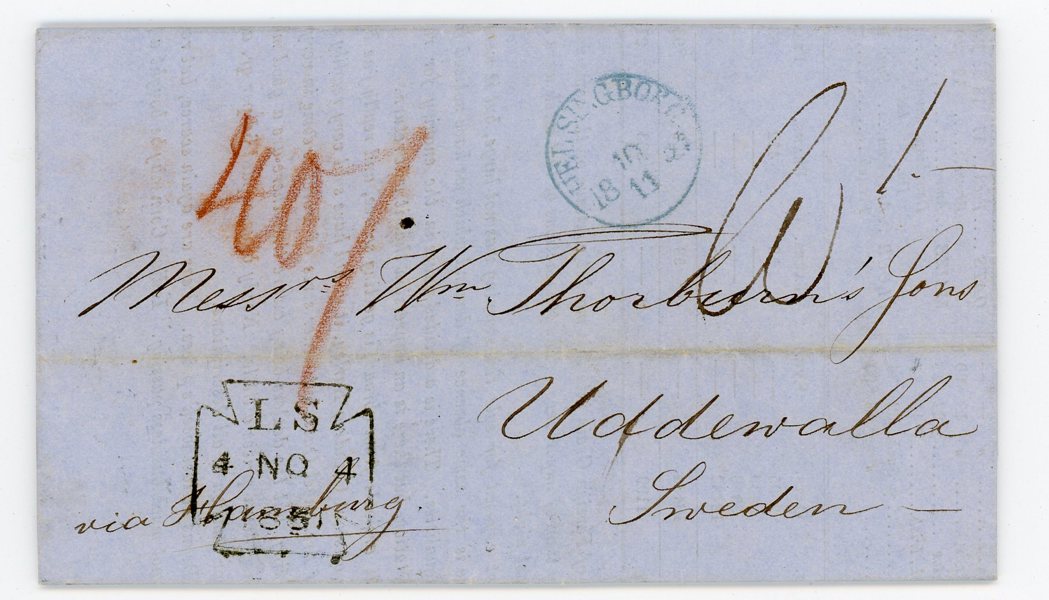 40
HELSINGBORG
10
18 11
Messrs Wm Thorburn's Sons
LS
4 NO 4
Uddewalla
via Hamburg
Sweden